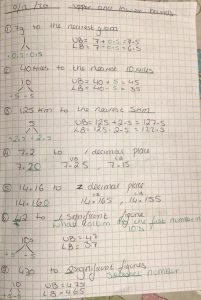 upper and lower bounds
① 7g to the nearest gram
UB = 7 + 0.5 = 7.5
LB = 7 - 0.5 = 6.5
② 40 miles to the nearest 10 miles
10 UB = 40 + 5 = 45
5 5 LB = 40 - 5 = 35
③ 125 km to the nearest 5km
5 UB = 125 + 2.5 = 127.5
LB = 125 - 2.5 =
④ 7.2 to 1 decimal place
UB LB
7.20 7.25 , 7.15
⑤ 14.16 to 2 decimal place
UB LB
14.160 14.165 , 14.155
⑥ 42 to 1 significant figure
the first number
10's
10 UB = 47
LB = 37
470 to significant figures
number
10 UB = 475
LB = 465